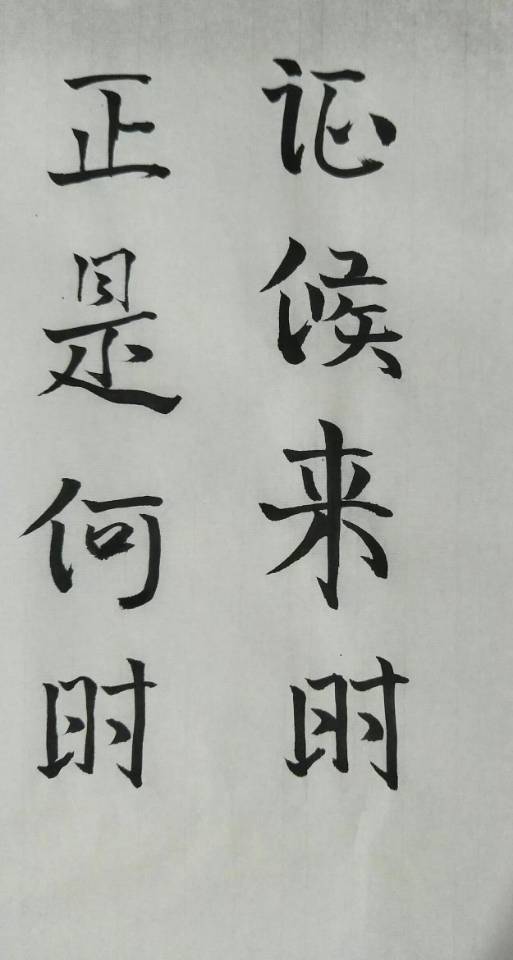 证候来时
正是何时